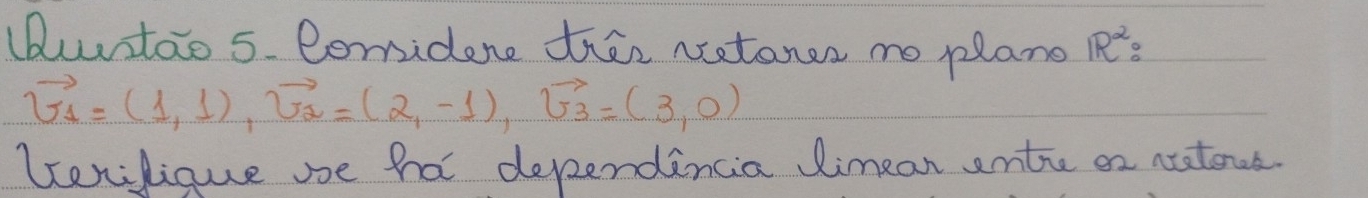 Questão 5- Considere três vetores no plano ℝ²:
v⃗₁ = (1, 1), v⃗₂ = (2, -1), v⃗₃ = (3, 0)
Verifique se há dependência linear entre os vetores.